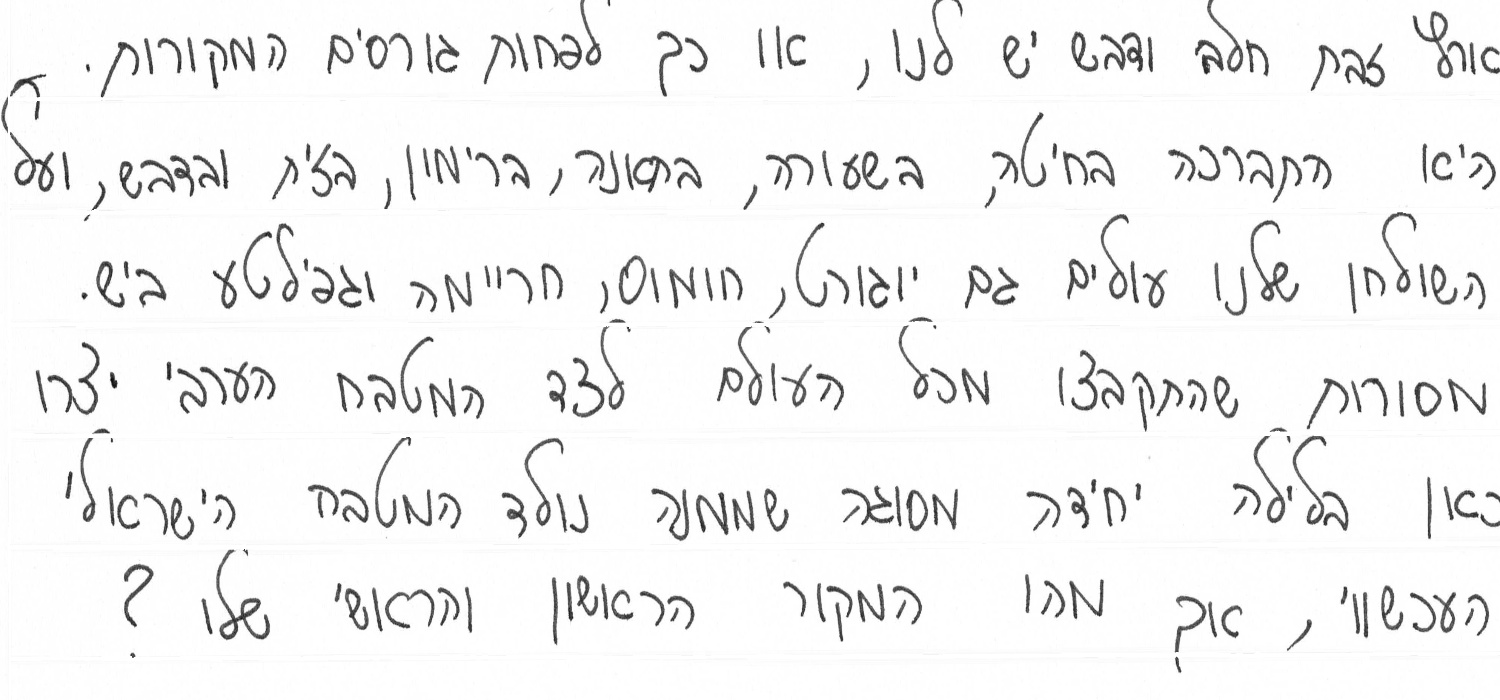 ארץ זבת חלב ודבש יש לנו, או כך לפחות גורסים המקורות.
היא התברכה בחיטה, בשעורה, בתאנה, ברימון, בזית ובדבש, ועל
השולחן שלנו עולים גם יוגורט, חומוס, חריימה וגפילטע ביש.
מסורות שהתקבצו מכל העולם לצד המטבח הערבי יצרו
כאן בלילה יחידה מסוגה שממנה נולד המטבח הישראלי
העכשווי, אך מהו המקור הראשון והראשי שלו?